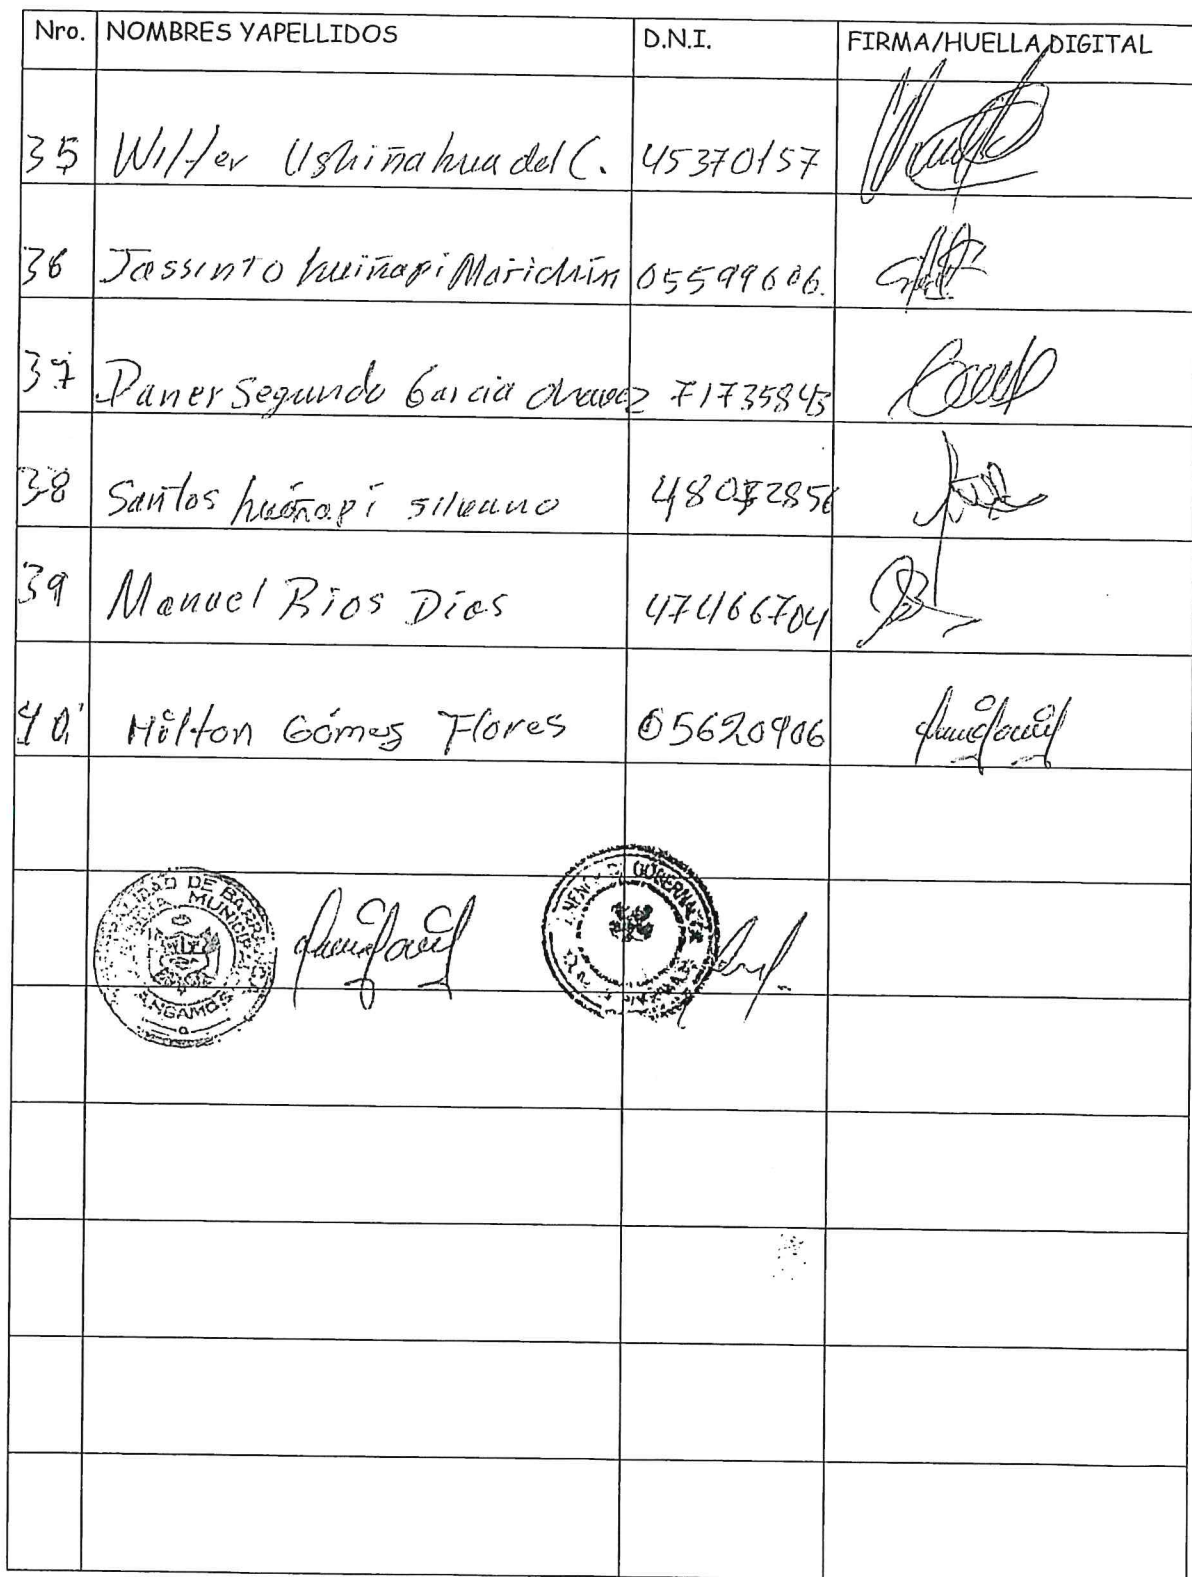 Nro. NOMBRES YAPELLIDOS D.N.I. FIRMA/HUELLA DIGITAL
35 Wilfer Ushiñahua del C. 45370157
36 Jassinto huiñapi Marichin 05599606.
37 Daner Segundo Garcia chavez 71735843
38 Santos huiñapi silvano
39 Manuel Rios Dias 47466704
40 Hilton Gómes Flores 05620906
DE BARRANCA
MUNICIPAL
ANGAMOS